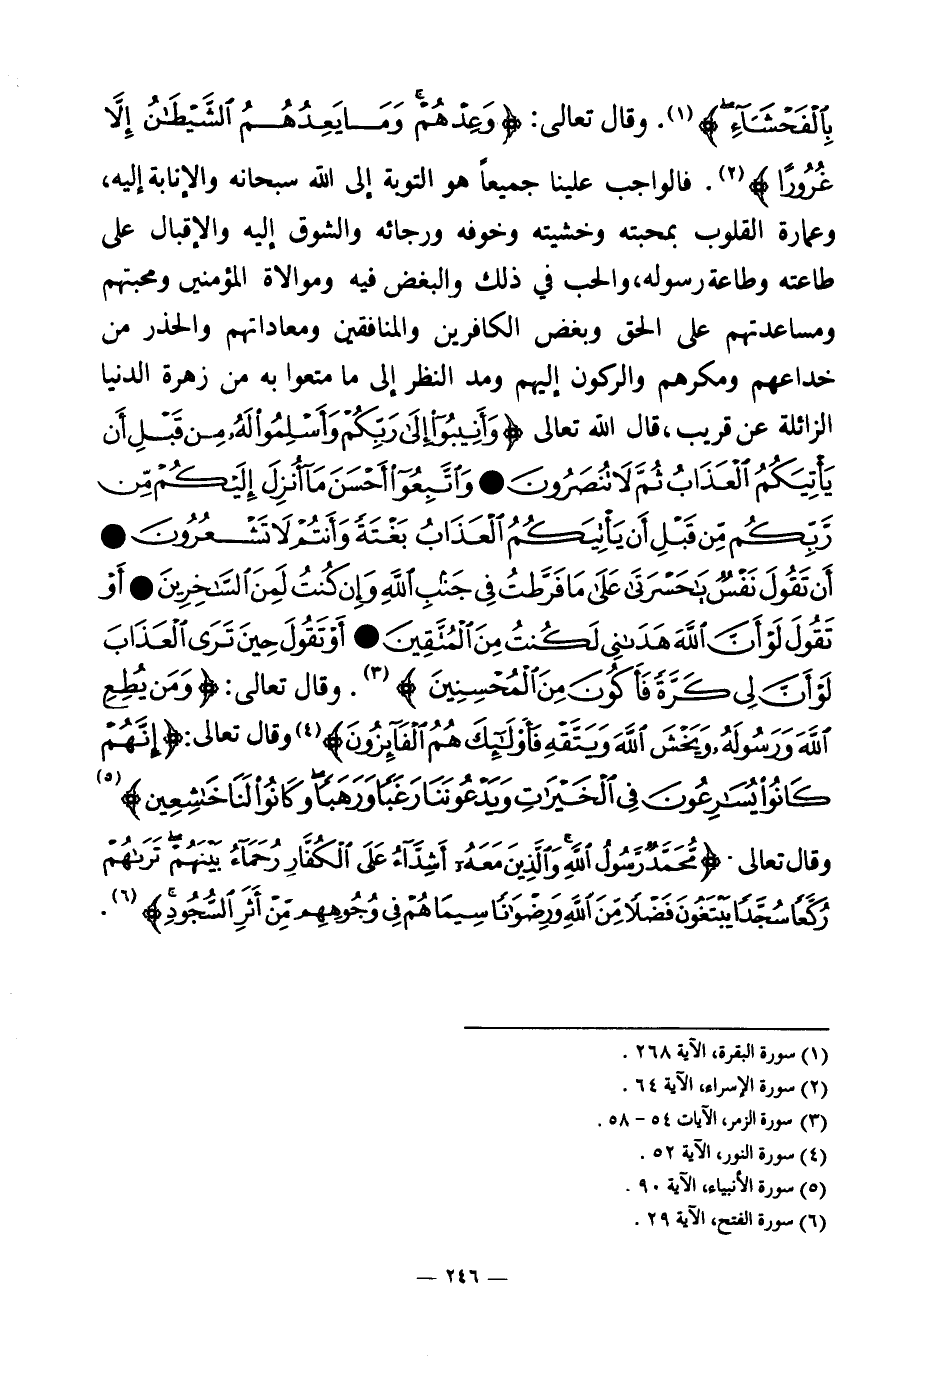 بِٱلْفَحْشَآءِ ۖ﴾(١). وقال تعالى: ﴿وَعِدْهُمْ ۚ وَمَا يَعِدُهُمُ ٱلشَّيْطَٰنُ إِلَّا
غُرُورًا﴾(٢). فالواجب علينا جميعاً هو التوبة إلى الله سبحانه والإنابة إليه،
وعمارة القلوب بمحبته وخشيته وخوفه ورجائه والشوق إليه والإقبال على
طاعته وطاعة رسوله، والحب في ذلك والبغض فيه وموالاة المؤمنين ومحبتهم
ومساعدتهم على الحق وبغض الكافرين والمنافقين ومعاداتهم والحذر من
خداعهم ومكرهم والركون إليهم ومد النظر إلى ما متعوا به من زهرة الدنيا
الزائلة عن قريب، قال الله تعالى ﴿وَأَنِيبُوٓا۟ إِلَىٰ رَبِّكُمْ وَأَسْلِمُوا۟ لَهُۥ مِن قَبْلِ أَن
يَأْتِيَكُمُ ٱلْعَذَابُ ثُمَّ لَا تُنصَرُونَ ● وَٱتَّبِعُوٓا۟ أَحْسَنَ مَآ أُنزِلَ إِلَيْكُم مِّن
رَّبِّكُم مِّن قَبْلِ أَن يَأْتِيَكُمُ ٱلْعَذَابُ بَغْتَةً وَأَنتُمْ لَا تَشْعُرُونَ ●
أَن تَقُولَ نَفْسٌ يَٰحَسْرَتَىٰ عَلَىٰ مَا فَرَّطتُ فِى جَنۢبِ ٱللَّهِ وَإِن كُنتُ لَمِنَ ٱلسَّٰخِرِينَ ● أَوْ
تَقُولَ لَوْ أَنَّ ٱللَّهَ هَدَىٰنِى لَكُنتُ مِنَ ٱلْمُتَّقِينَ ● أَوْ تَقُولَ حِينَ تَرَى ٱلْعَذَابَ
لَوْ أَنَّ لِى كَرَّةً فَأَكُونَ مِنَ ٱلْمُحْسِنِينَ﴾(٣). وقال تعالى: ﴿وَمَن يُطِعِ
ٱللَّهَ وَرَسُولَهُۥ وَيَخْشَ ٱللَّهَ وَيَتَّقْهِ فَأُو۟لَٰٓئِكَ هُمُ ٱلْفَآئِزُونَ﴾(٤) وقال تعالى: ﴿إِنَّهُمْ
كَانُوا۟ يُسَٰرِعُونَ فِى ٱلْخَيْرَٰتِ وَيَدْعُونَنَا رَغَبًا وَرَهَبًا ۖ وَكَانُوا۟ لَنَا خَٰشِعِينَ﴾(٥)
وقال تعالى. ﴿مُّحَمَّدٌ رَّسُولُ ٱللَّهِ ۚ وَٱلَّذِينَ مَعَهُۥٓ أَشِدَّآءُ عَلَى ٱلْكُفَّارِ رُحَمَآءُ بَيْنَهُمْ ۖ تَرَىٰهُمْ
رُكَّعًا سُجَّدًا يَبْتَغُونَ فَضْلًا مِّنَ ٱللَّهِ وَرِضْوَٰنًا سِيمَاهُمْ فِى وُجُوهِهِم مِّنْ أَثَرِ ٱلسُّجُودِ ۚ﴾(٦).
(١) سورة البقرة، الآية ٢٦٨ .
(٢) سورة الإسراء، الآية ٦٤ .
(٣) سورة الزمر، الآيات ٥٤ – ٥٨ .
(٤) سورة النور، الآية ٥٢ .
(٥) سورة الأنبياء، الآية ٩٠ .
(٦) سورة الفتح، الآية ٢٩ .
— ٢٤٦ —